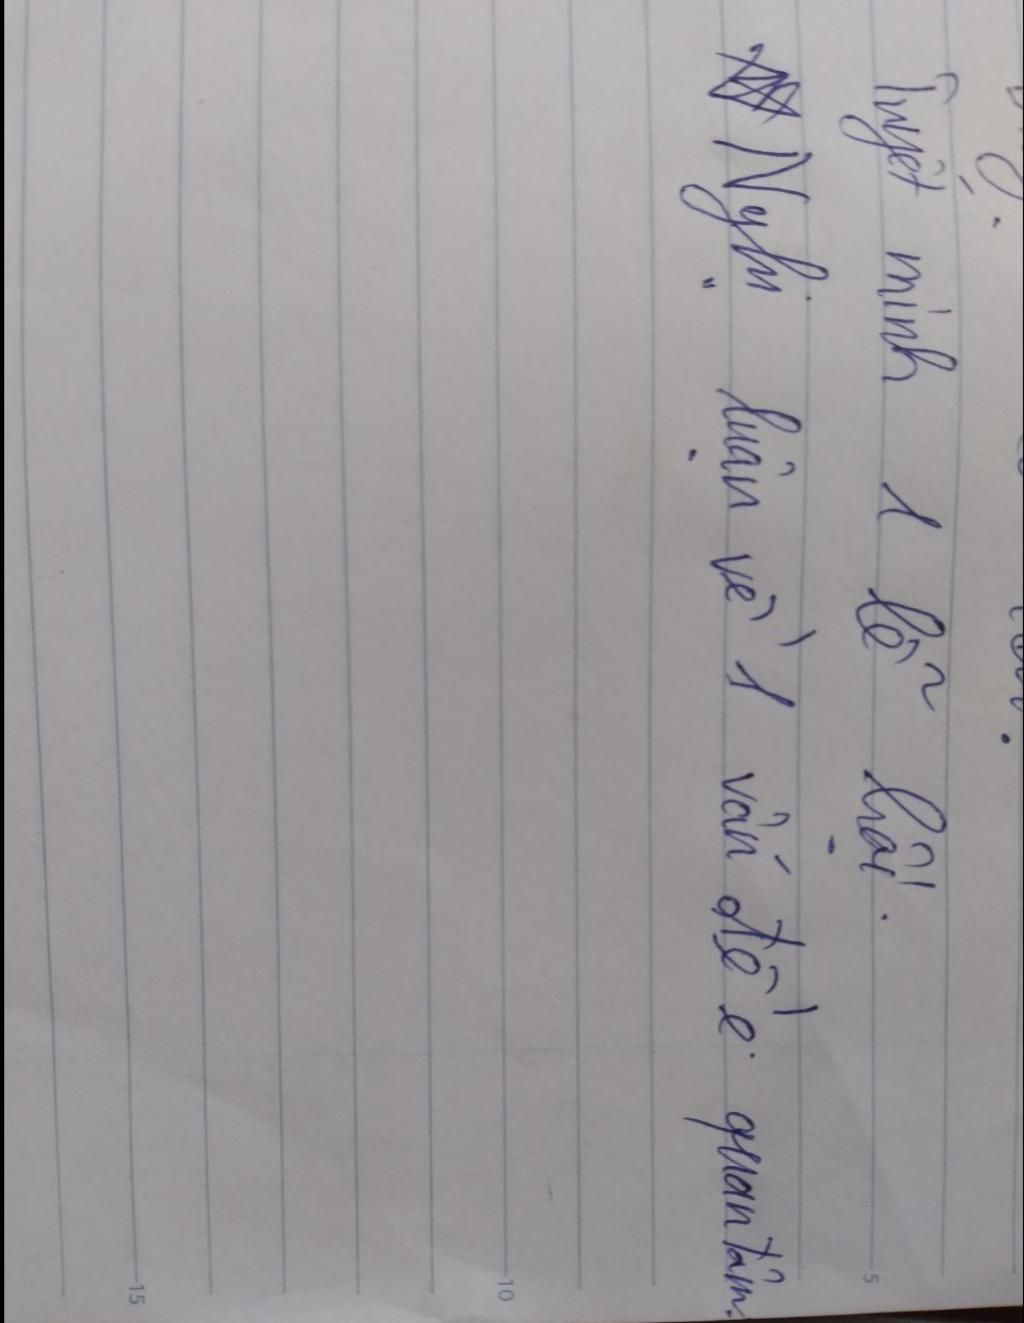 Tuyết minh 1 lễ hội.
Nghị luận về 1 vấn đề e quan tâm.
5
10
15